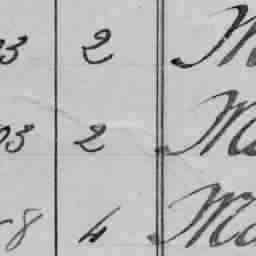 3 2 M
03 2 Ma
8 4 Ma